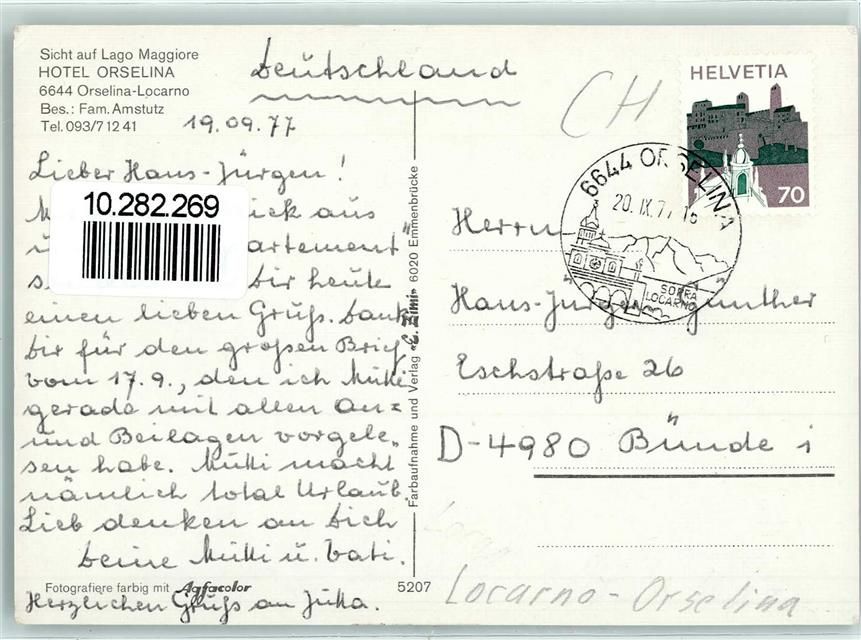 Sicht auf Lago Maggiore
HOTEL ORSELINA
6644 Orselina-Locarno
Bes.: Fam. Amstutz
Tel. 093/7 12 41
19.09.77
Deutschland
Lieber Hans-Jürgen!
10.282.269
aus
artement"
Dir heute
einen lieben Gruß. Dank
Dir für den großen Brief
vom 17.9., den ich Mutti
gerade mit allen An=
und Beilagen vorgele=
sen habe. Mutti macht
nämlich total Urlaub.
Lieb denken an Dich
Deine Mutti u. Vati.
Fotografiere farbig mit Agfacolor
Herzlichen Gruß an Jutta.
Farbaufnahme und Verlag «E. Zimi» 6020 Emmenbrücke
5207
CH
HELVETIA
70
6644 ORSELINA
20.IX.77 16
SOPRA
LOCARNO
Herrn
Hans-Jürgen Günther
Eschstraße 26
D-4980 Bünde i
Locarno-Orselina